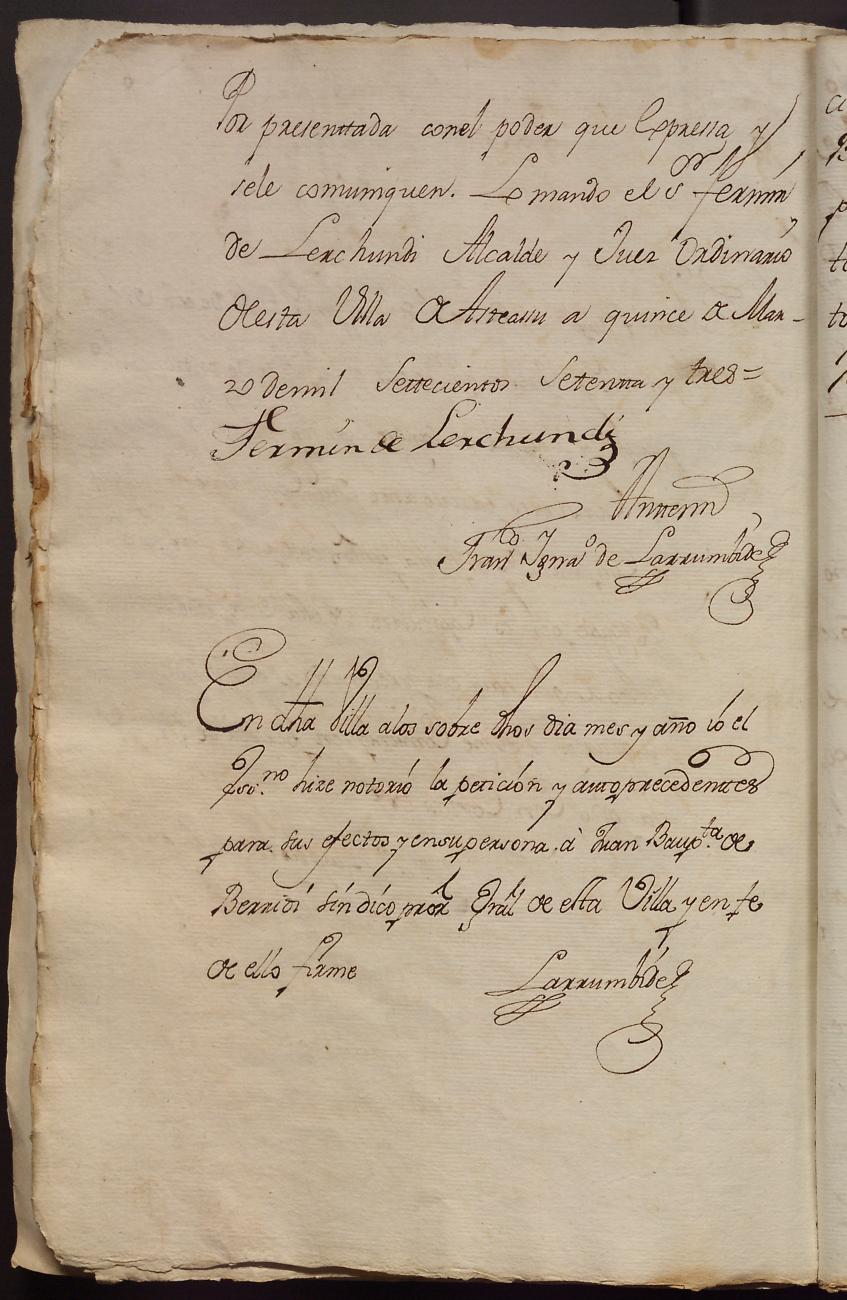 Por presenttada conel poder que Expressa y
sele comuniquen. Lo mando el Sor fermin
de Lerchundi Alcalde y Juez Ordinario
desta Villa de Asteassu a quince de Mar-
zo demil Settecientos Setentta y tres=
Fermin de Lerchundi
Anttemi
Franco Ignao de Larrumbide
En dha Villa alos sobre dhos dia mes y año io el
Issno hize notorio la petición y auto precedenttes
para sus efectos y ensu persona à Juan Baupta de
Berridi síndico pror Gral de esta Villa y en fe
de ello firme
Larrumbide